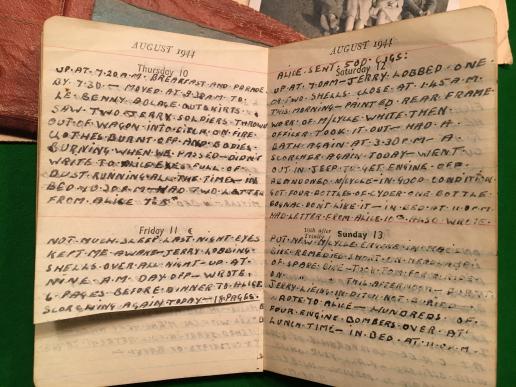 AUGUST 1944
Thursday 10
UP. AT. 7.20A.M. BREAKFAST AND PARADE
BY. 7.30 — MOVED AT 9.30AM TO.
LE. BENNY. BOCAGE OUTSKIRTS.
SAW. TWO JERRY. SOLDIERS THROWN
OUT OF WAGON INTO ON FIRE
CLOTHES BURNT OFF AND BODIES.
BURNING WHEN WE PASSED — DIDN'T
WRITE TO ALICE EYES FULL. OF
DUST. RUNNING ALL THE TIME — IN
BED 10.30P.M — HAD TWO LETTER
FROM. ALICE
Friday 11
NOT. MUCH. SLEEP. LAST. NIGHT. EYES
KEPT ME. AWAKE — JERRY. LOBBING.
SHELLS OVER. ALL NIGHT — UP. AT.
NINE. A.M. DAY OFF — WROTE.
6. PAGES. BEFORE DINNER TO ALICE.
SCORCHING AGAIN TODAY — 18 PAGES.
AUGUST 1944
ALICE. SENT. 500 CIGS:
Saturday 12
UP. AT. 7.30AM — JERRY. LOBBED. ONE.
OR TWO. SHELLS. CLOSE. AT. 1.45 A.M.
THIS MORNING — PAINTED REAR. FRAME.
WORK. OF. M/CYCLE. WHITE. THEN.
OFFICER. TOOK. IT. OUT — HAD. A.
BATH. AGAIN. AT 3.30P.M — A.
SCORCHER AGAIN TODAY — WENT.
OUT. IN JEEP. TO. GET. ENGINE. OFF.
ABANDONED M/CYCLE — IN. GOOD. CONDITION
GOT. FOUR. BOTTLES. OF. CYDER. ONE BOTTLE.
COGNAC. DON'T. LIKE. IT — IN. BED. AT. 11.0P.M.
HAD. LETTER. FROM. ALICE. ALSO. WROTE.
10th after
Trinity
Sunday 13
PUT. NEW. M/CYCLE ENGINE. IN
REMEDIED. SHORT. ON. HEADLAMP.
OF. SPARE. TOOK. TOM. FOR. A
ON THIS AFTERNOON —
JERRY. LYEING. IN DITCH. NOT. BURIED
WROTE TO ALICE — HUNDREDS. OF.
FOUR. ENGINE. BOMBERS. OVER. AT.
LUNCH. TIME — IN. BED. AT. 11.0P.M.